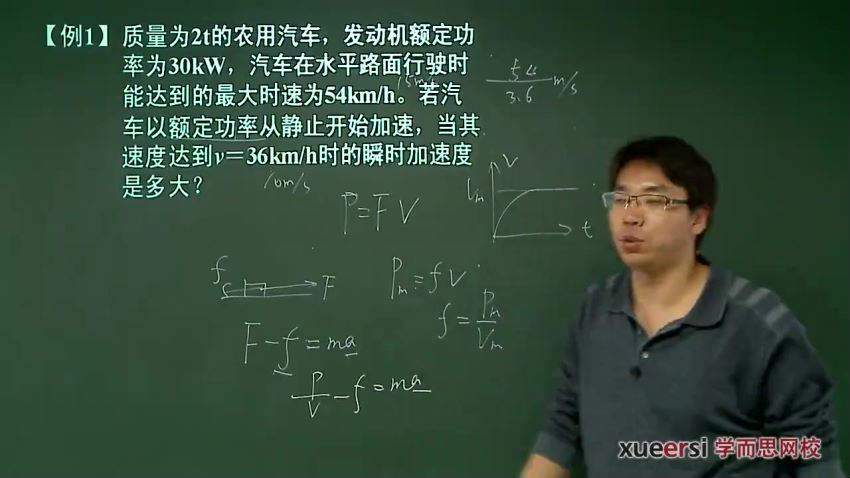 【例1】质量为2t的农用汽车，发动机额定功
率为30kW，汽车在水平路面行驶时
能达到的最大时速为54km/h。若汽
车以额定功率从静止开始加速，当其
速度达到v＝36km/h时的瞬时加速度
是多大？
15m/s
54
3.6
m/s
10m/s
P=FV
V
Vm
t
f
F
Pm=fV
f=Pm/Vm
F-f=ma
P/V-f=ma
xueersi 学而思网校